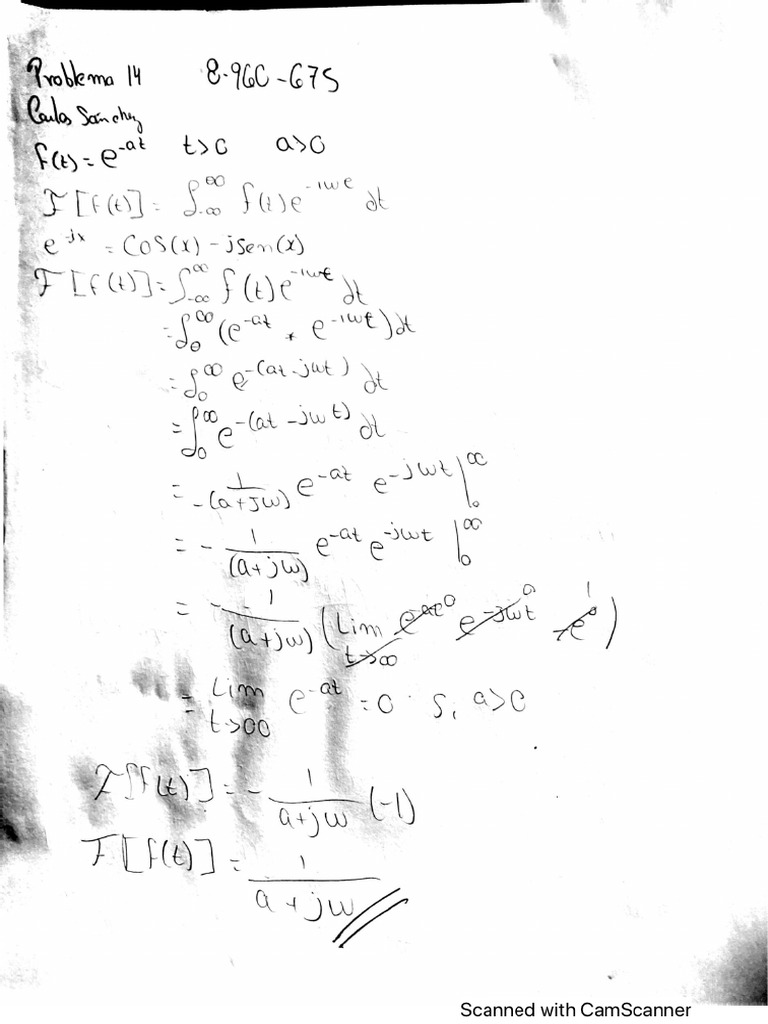 Problema 14 8-960-675
Carlos Sánchez
f(t) = e^{-at} t>0 a>0
F[f(t)] = ∫_{-∞}^{∞} f(t)e^{-iwt} dt
e^{-jx} = cos(x) - jsen(x)
F[f(t)] = ∫_{-∞}^{∞} f(t)e^{-iwt} dt
= ∫_0^{∞} (e^{-at} * e^{-iwt}) dt
= ∫_0^{∞} e^{-(at-jwt)} dt
= ∫_0^{∞} e^{-(at-jwt)} dt
= 1/-(a+jw) e^{-at} e^{-jwt} |_0^{∞}
= - 1/(a+jw) e^{-at} e^{-jwt} |_0^{∞}
= - 1/(a+jw) (Lim_{t→∞} e^{-at} 0 e^{-jwt} 0 -e^0 1)
= Lim_{t→∞} e^{-at} = 0 Si a>0
F[f(t)] = - 1/(a+jw) (-1)
F[f(t)] = 1/(a+jw)
Scanned with CamScanner